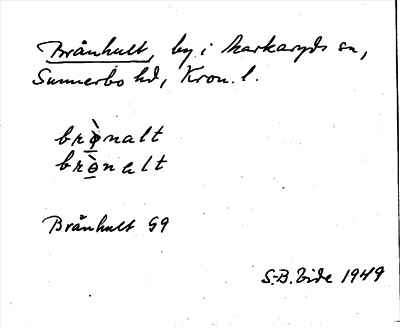 Brånhult, by i Markaryds sn,
Sunnerbo hd, Kron. l.
brø̀nalt
brò̱nalt
Brånhult G9
S.-B. Vide 1949